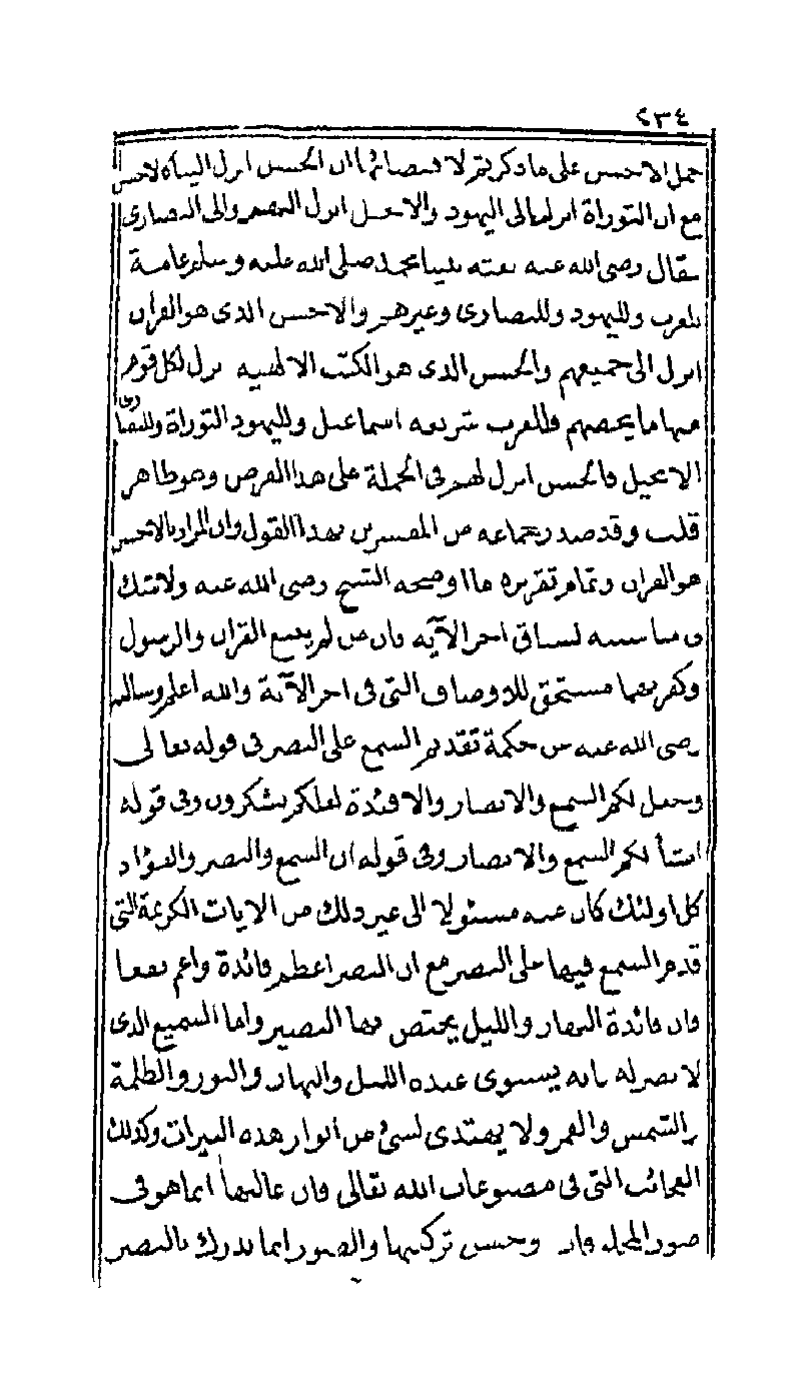 ٢٣٤
حمل الاحسن على ما ذكرتم لاقتضائها ان الحسن انزل الينا لا الاحسن
مع ان التوراة انزلها الى اليهود والانجيل انزل اليهم والى النصارى
فقال رضى الله عنه بعثة نبينا محمد صلى الله عليه وسلم عامة
للعرب ولليهود وللنصارى وغيرهم والاحسن الذى هو القرآن
انزل الى جميعهم والحسن الذى هو الكتب الالهية نزل لكل قوم
منها ما يخصهم فللعرب شريعة اسماعيل ولليهود التوراة وللنصارى
الانجيل فالحسن انزل لهم فى الجملة على هذا الغرض وهو ظاهر
قلت وقد صدر جماعة من المفسرين بهذا القول وان المراد بالاحسن
هو القران وتمام تقريره ما اوضحه الشيخ رضى الله عنه ولا شك
فى مناسبته لسياق اخر الآية فان من لم يتبع القران والرسول
وكفر بهما مستحق للاوصاف التى فى اخر الآية والله اعلم وسالته
رضى الله عنه عن حكمة تقديم السمع على البصر فى قوله تعالى
وجعل لكم السمع والابصار والافئدة لعلكم تشكرون وفى قوله
انشأ لكم السمع والابصار وفى قوله ان السمع والبصر والفؤاد
كل اولئك كان عنه مسئولا الى غير ذلك من الايات الكريمة التى
قدم السمع فيها على البصر مع ان البصر اعظم فائدة واعم نفعا
فان فائدة النهار والليل يختص بها البصير واما السميع الذى
لا بصر له فانه يستوى عنده الليل والنهار والنور والظلمة
والشمس والقمر ولا يهتدى لشئ من أنوار هذه النيرات وكذلك
العجائب التى فى مصنوعات الله تعالى فان غالبها انما هو فى
صور المخلوقات وحسن تركيبها والصور انما تدرك بالبصر